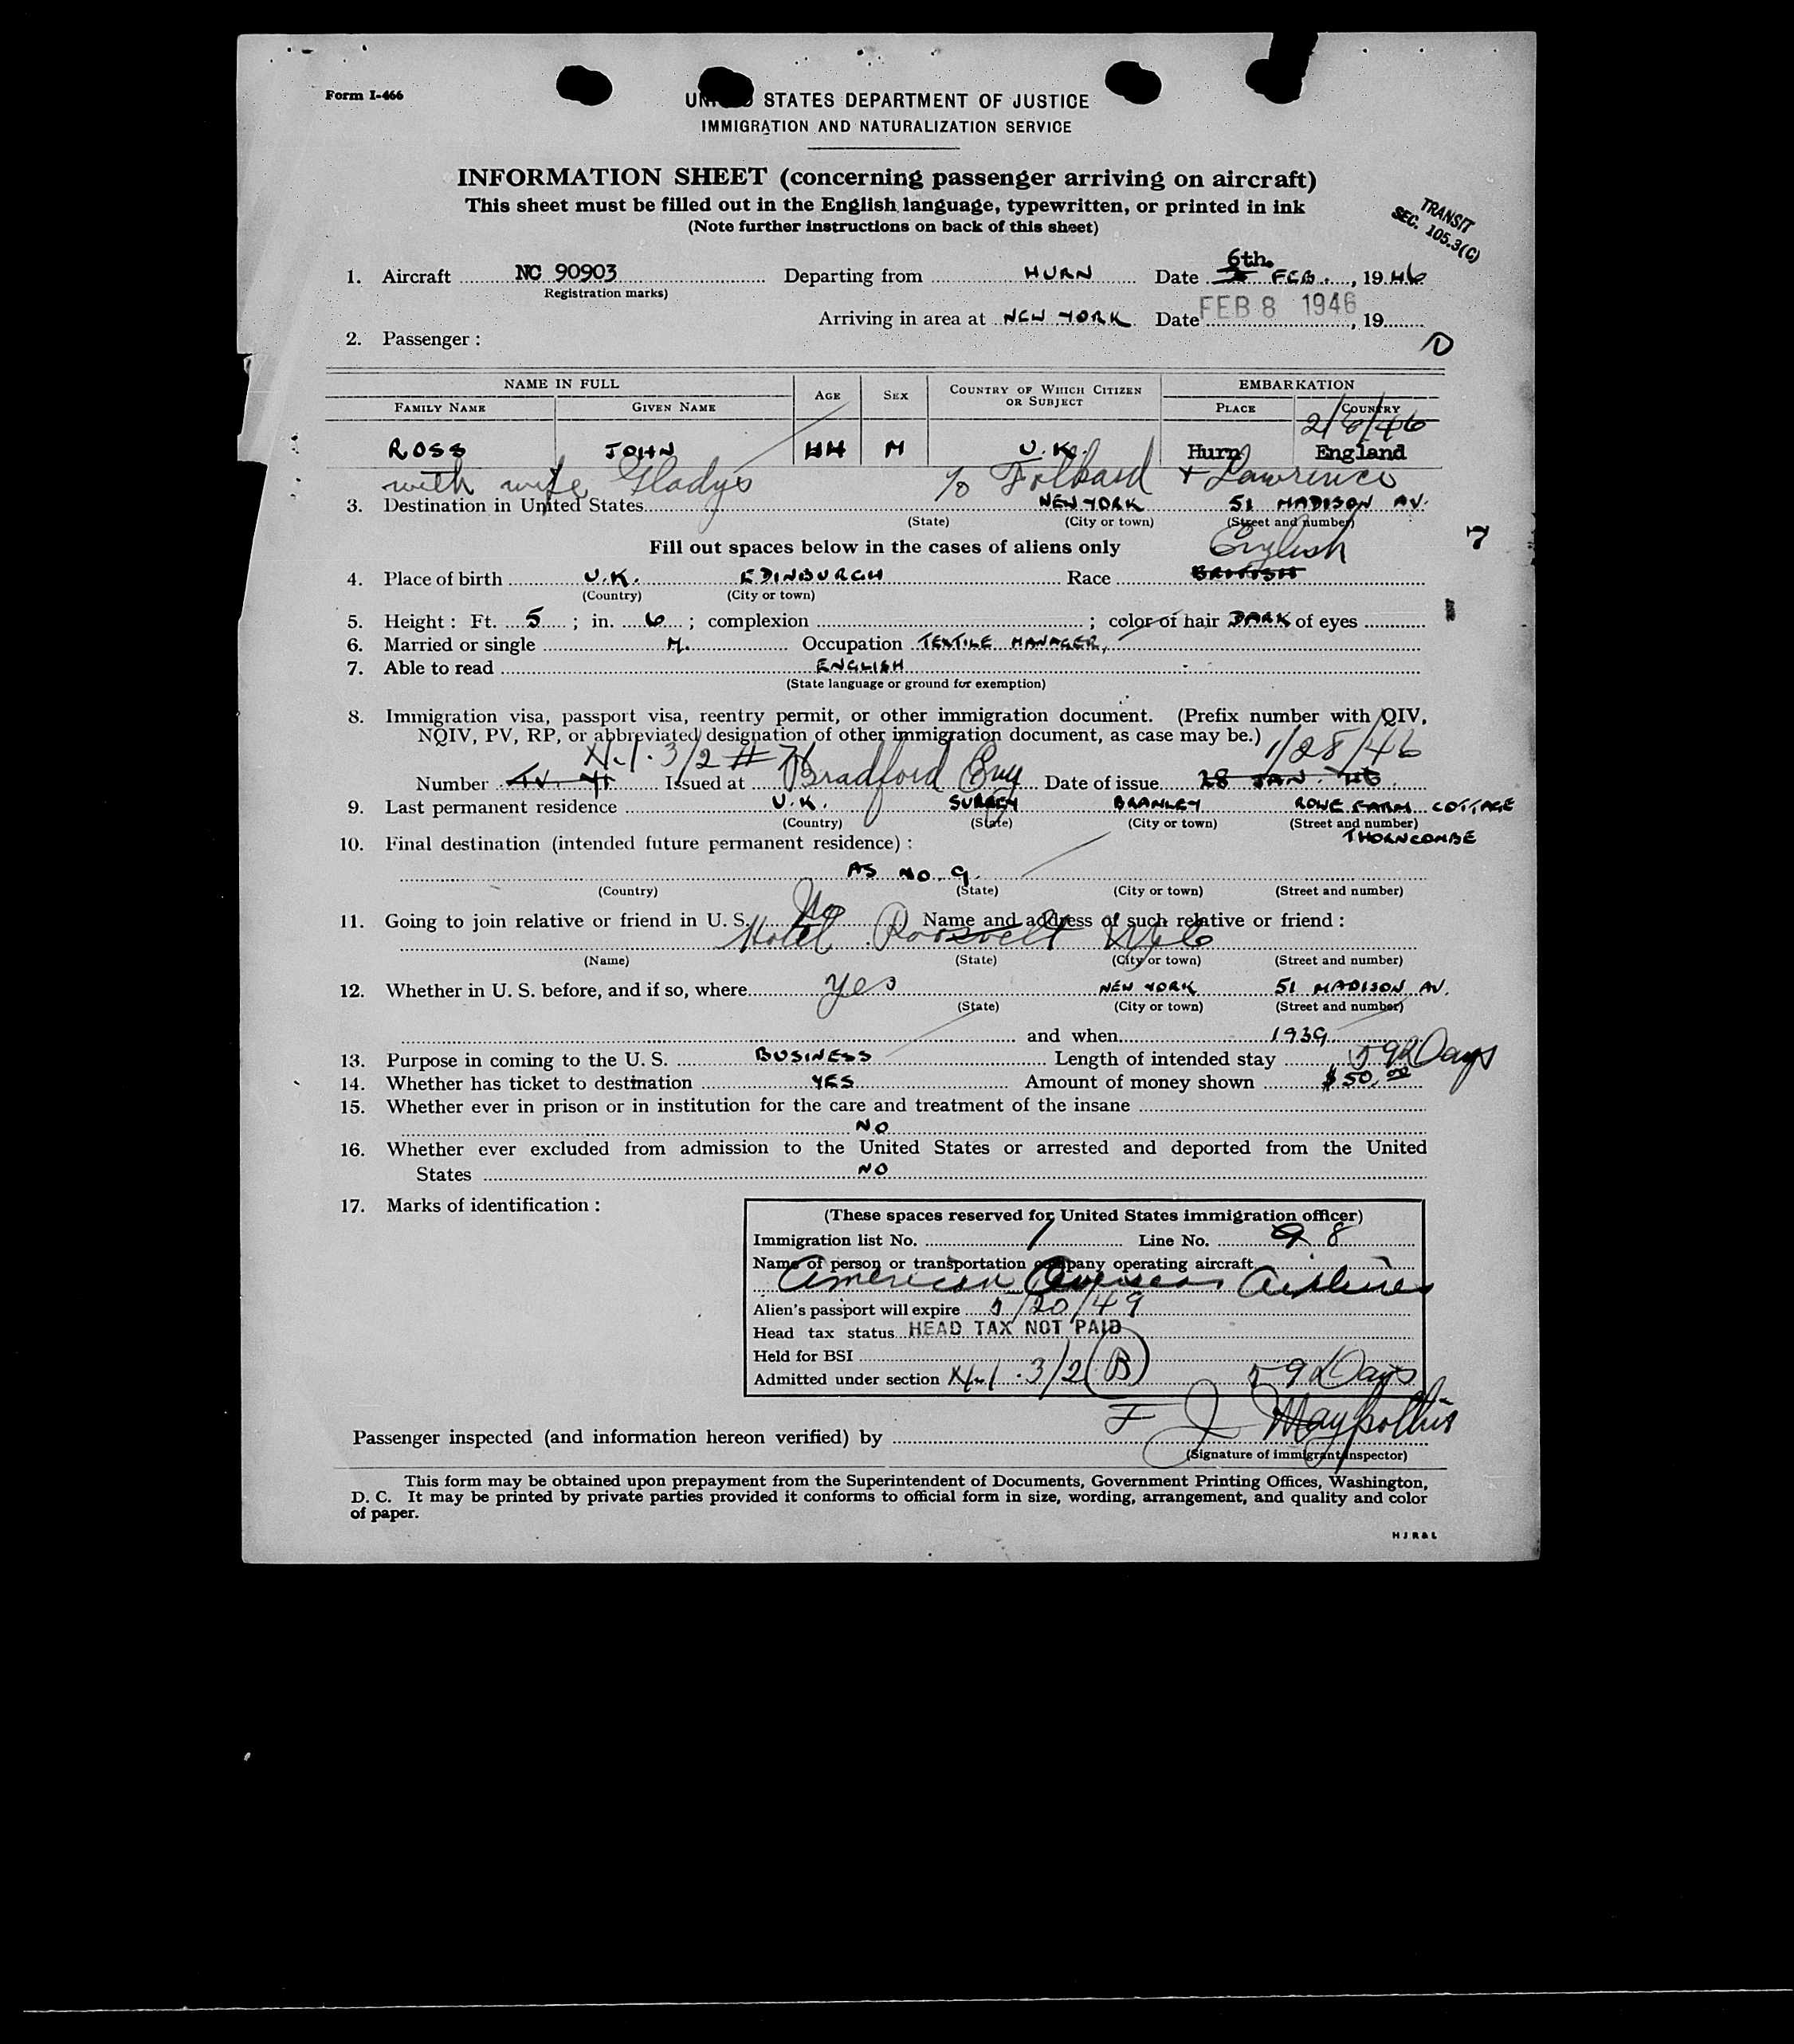 Form I-466
UNITED STATES DEPARTMENT OF JUSTICE
IMMIGRATION AND NATURALIZATION SERVICE
INFORMATION SHEET (concerning passenger arriving on aircraft)
This sheet must be filled out in the English language, typewritten, or printed in ink
(Note further instructions on back of this sheet)
TRANSIT
SEC. 105.3(C)
6th.
1. Aircraft NC 90903 Departing from HURN Date FEB. , 1946
(Registration marks)
Arriving in area at NEW YORK Date FEB 8 1946 , 19
2. Passenger :
NAME IN FULL AGE SEX COUNTRY OF WHICH CITIZEN OR SUBJECT EMBARKATION
FAMILY NAME GIVEN NAME PLACE COUNTRY
2/8/46
ROSS JOHN 44 M U.K. Hurn England
with wife Gladys c/o + Lawrence
3. Destination in United States NEW YORK 51 MADISON AV.
(State) (City or town) (Street and number)
7
Fill out spaces below in the cases of aliens only English
4. Place of birth U.K. EDINBURGH Race BRITISH
(Country) (City or town)
5. Height : Ft. 5 ; in. 6 ; complexion ; color of hair DARK of eyes
6. Married or single M. Occupation TEXTILE MANAGER,
7. Able to read ENGLISH
(State language or ground for exemption)
8. Immigration visa, passport visa, reentry permit, or other immigration document. (Prefix number with QIV,
NQIV, PV, RP, or abbreviated designation of other immigration document, as case may be.)
3/2 # 71 1/28/46
Number Issued at Bradford Eng Date of issue 28 JAN. 46.
9. Last permanent residence U.K. SURREY BRAMLEY ROWE FARM COTTAGE
(Country) (State) (City or town) (Street and number)
THORNCOMBE
10. Final destination (intended future permanent residence) :
AS NO. 9.
(Country) (State) (City or town) (Street and number)
11. Going to join relative or friend in U. S. No Name and address of such relative or friend :
Hotel Roosevelt NYC
(Name) (State) (City or town) (Street and number)
12. Whether in U. S. before, and if so, where yes NEW YORK 51 MADISON AV.
(State) (City or town) (Street and number)
and when 1939
13. Purpose in coming to the U. S. BUSINESS Length of intended stay 59 Days
14. Whether has ticket to destination YES Amount of money shown $50.00
15. Whether ever in prison or in institution for the care and treatment of the insane
NO
16. Whether ever excluded from admission to the United States or arrested and deported from the United
States NO
17. Marks of identification :
(These spaces reserved for United States immigration officer)
Immigration list No. 1 Line No. 8
Name of person or transportation company operating aircraft
American Overseas Airlines
Alien's passport will expire 5/20/49
Head tax status HEAD TAX NOT PAID
Held for BSI
Admitted under section 3/2 (B) 59 Days
Passenger inspected (and information hereon verified) by F J
(Signature of immigrant inspector)
This form may be obtained upon prepayment from the Superintendent of Documents, Government Printing Offices, Washington,
D. C. It may be printed by private parties provided it conforms to official form in size, wording, arrangement, and quality and color
of paper.
H J R & L